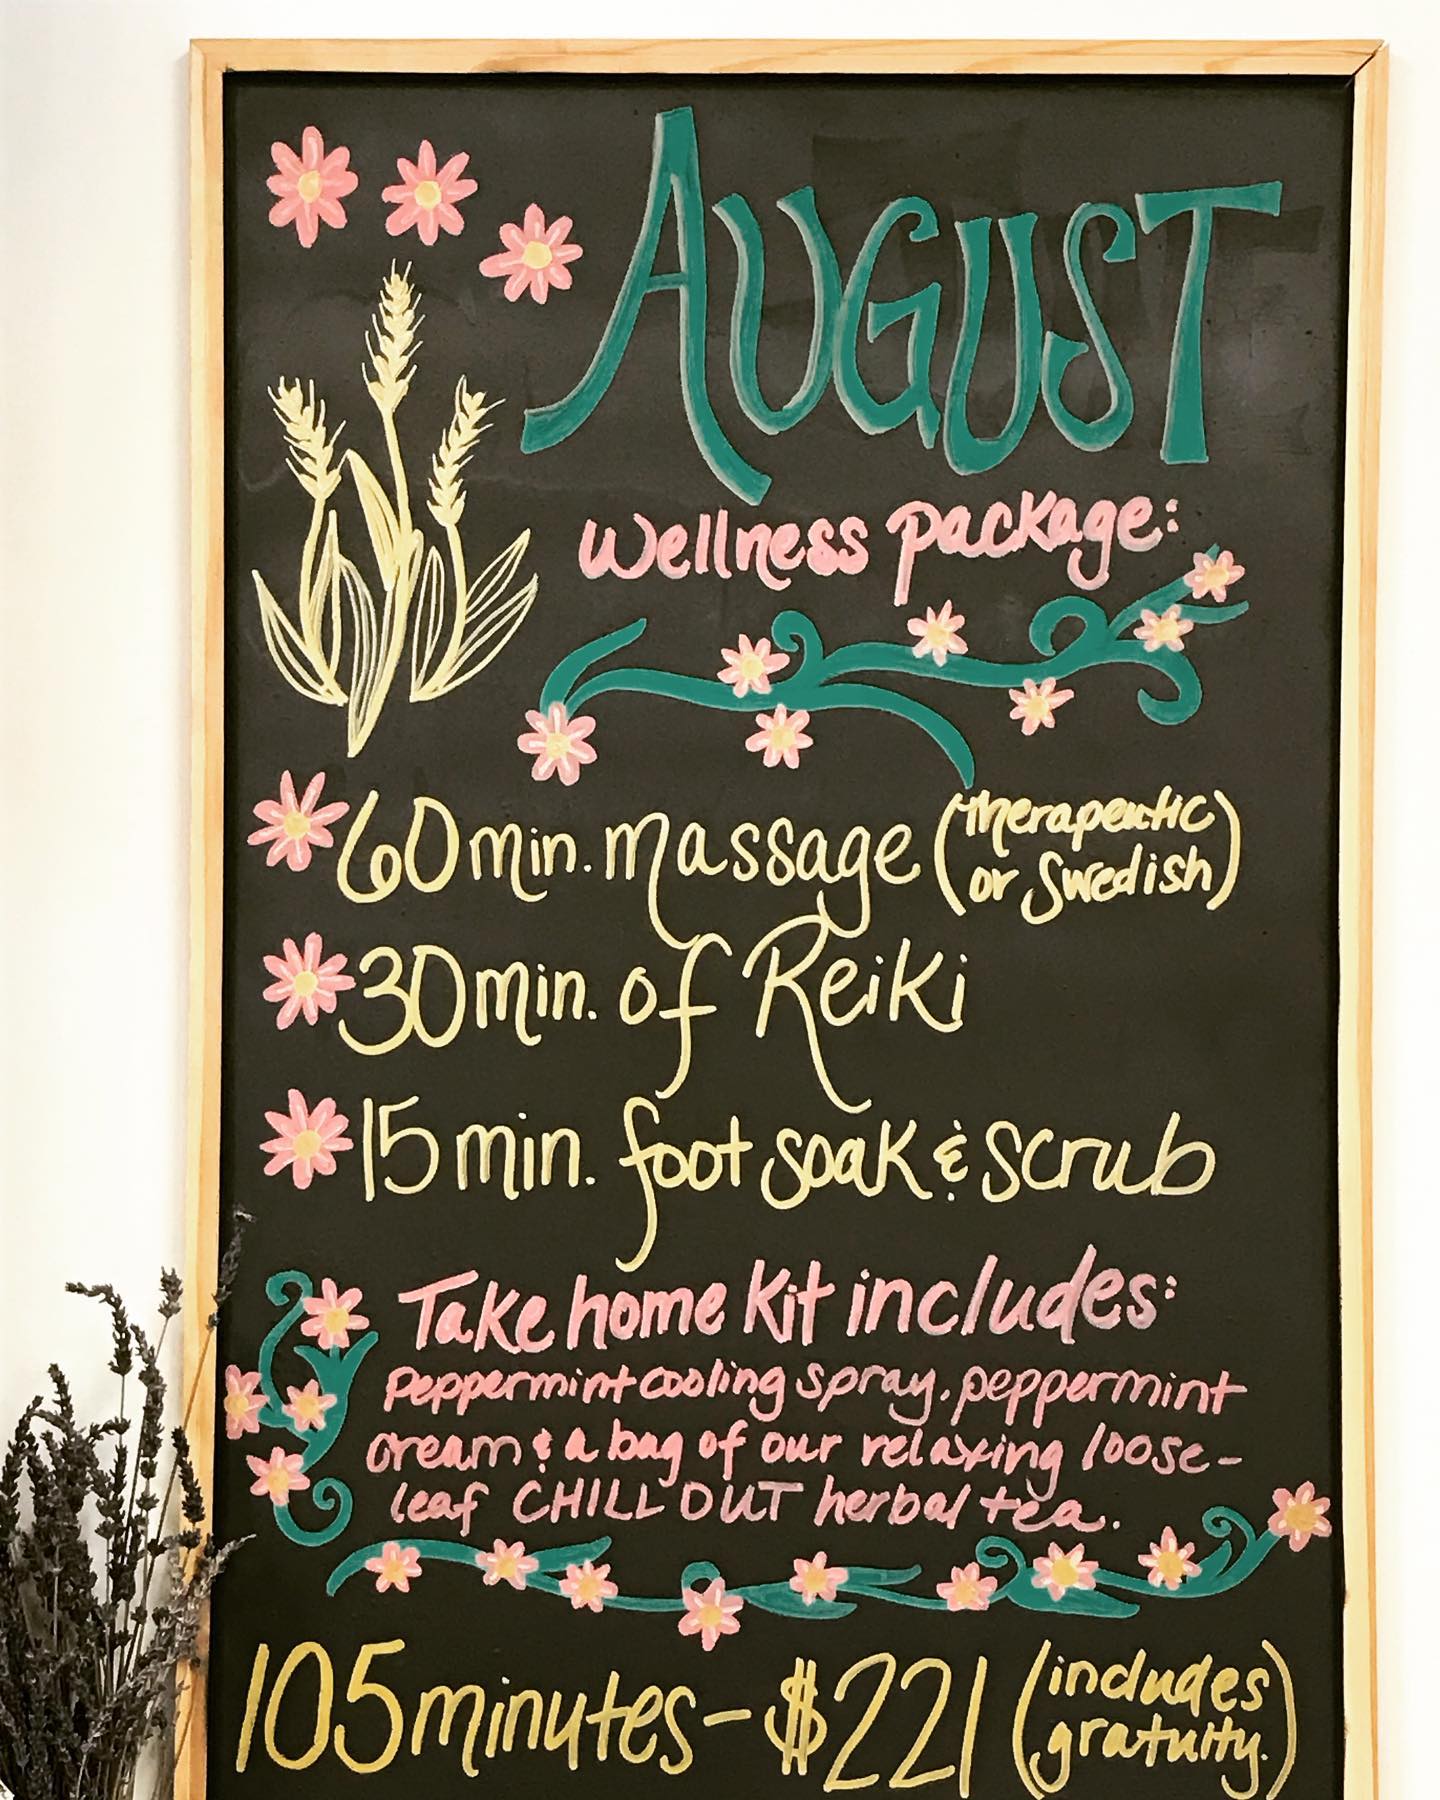 AUGUST
Wellness package:
60 min. massage (therapeutic
or Swedish)
30 min. of Reiki
15 min. foot soak & scrub
Take home kit includes:
peppermint cooling spray. peppermint
cream & a bag of our relaxing loose-
leaf CHILL OUT herbal tea.
105 minutes - $221 (includes
gratuity.)